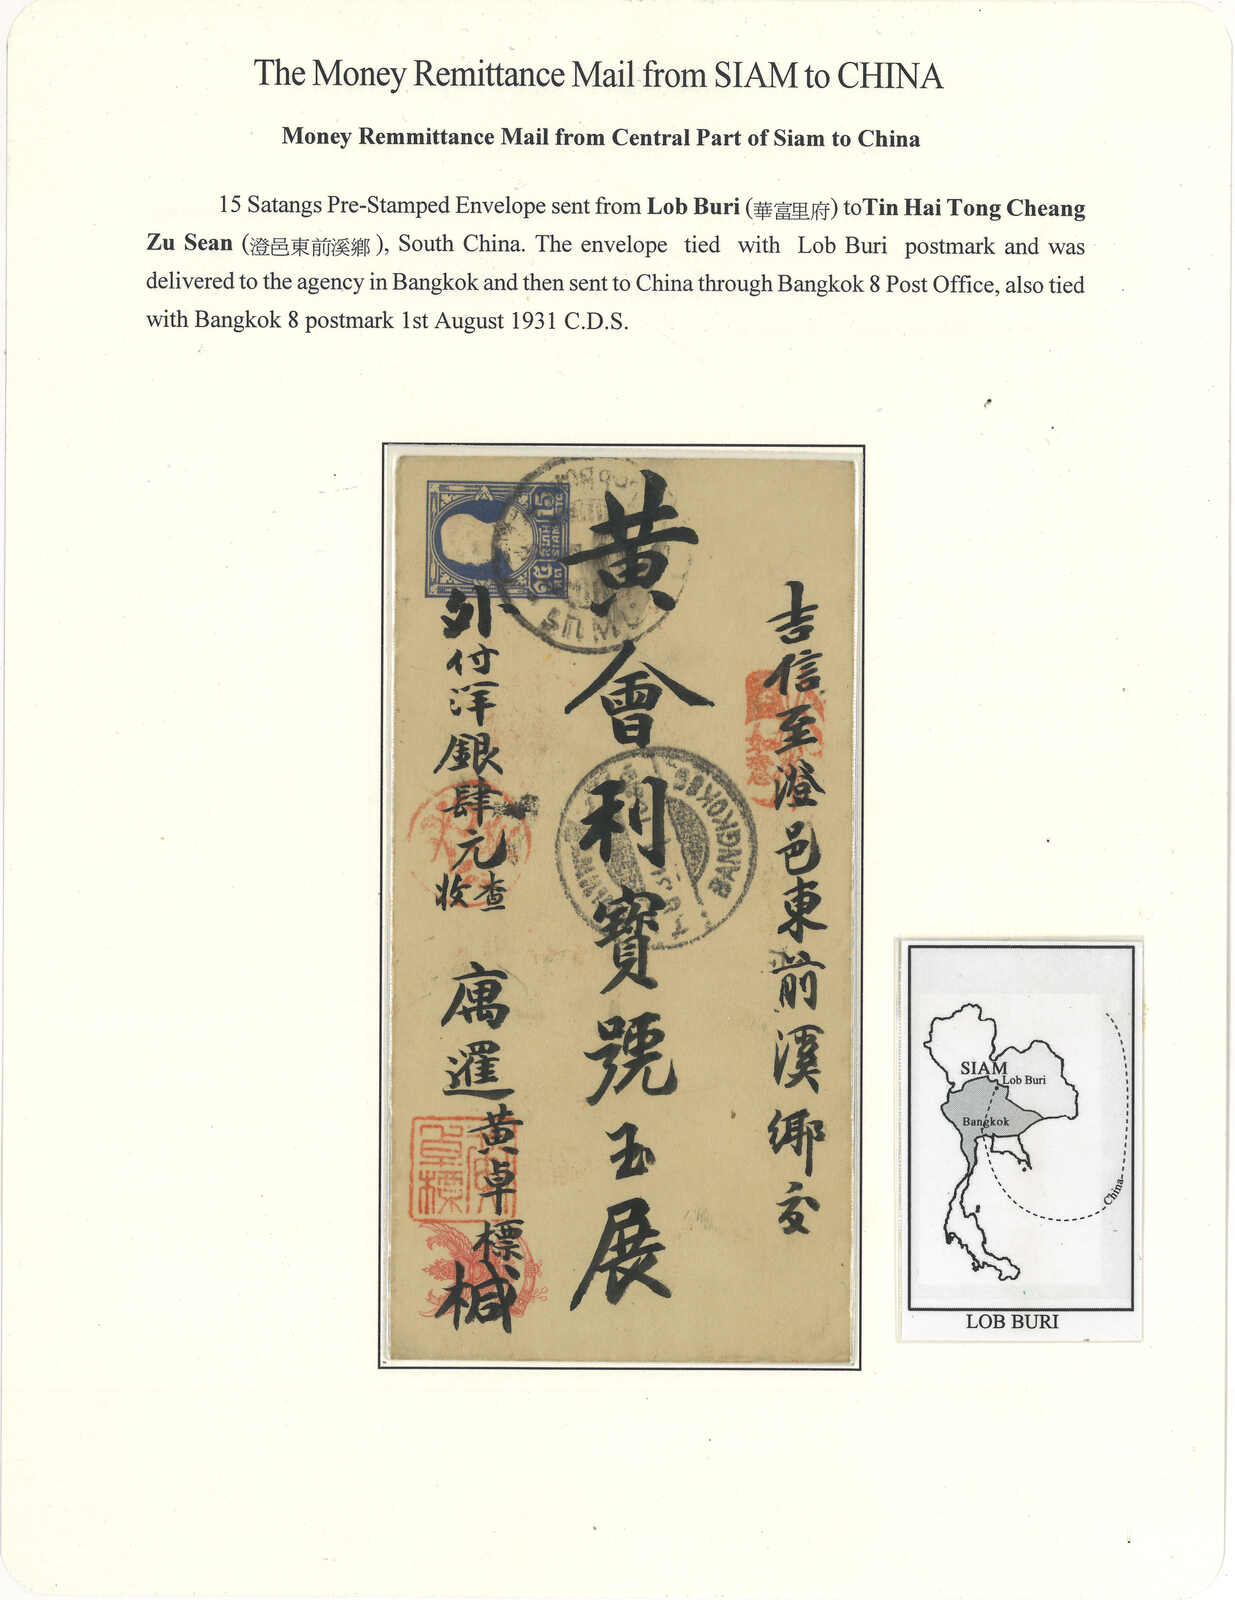 The Money Remittance Mail from SIAM to CHINA
Money Remmittance Mail from Central Part of Siam to China
15 Satangs Pre-Stamped Envelope sent from Lob Buri (華富里府) toTin Hai Tong Cheang
Zu Sean (澄邑東前溪鄉 ), South China. The envelope tied with Lob Buri postmark and was
delivered to the agency in Bangkok and then sent to China through Bangkok 8 Post Office, also tied
with Bangkok 8 postmark 1st August 1931 C.D.S.
吉信至澄邑東前溪鄉交
黃會利寶號玉展
外付洋銀肆元查收
寓暹黃卓標椷
15
SIAM
BANGKOK 8
如意
SIAM
Lob Buri
Bangkok
China
LOB BURI